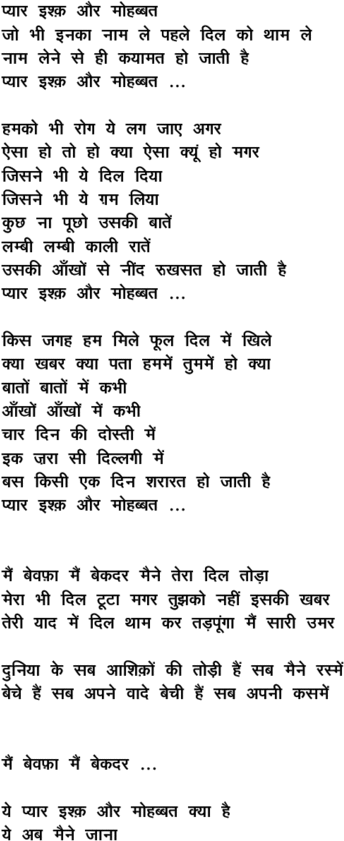 प्यार इश्क़ और मोहब्बत
जो भी इनका नाम ले पहले दिल को थाम ले
नाम लेने से ही कयामत हो जाती है
प्यार इश्क़ और मोहब्बत ...
हमको भी रोग ये लग जाए अगर
ऐसा हो तो हो क्या ऐसा क्यूं हो मगर
जिसने भी ये दिल दिया
जिसने भी ये ग़म लिया
कुछ ना पूछो उसकी बातें
लम्बी लम्बी काली रातें
उसकी आँखों से नींद रुखसत हो जाती है
प्यार इश्क़ और मोहब्बत ...
किस जगह हम मिले फूल दिल में खिले
क्या खबर क्या पता हममें तुममें हो क्या
बातों बातों में कभी
आँखों आँखों में कभी
चार दिन की दोस्ती में
इक ज़रा सी दिल्लगी में
बस किसी एक दिन शरारत हो जाती है
प्यार इश्क़ और मोहब्बत ...
मैं बेवफ़ा मैं बेकदर मैने तेरा दिल तोड़ा
मेरा भी दिल टूटा मगर तुझको नहीं इसकी खबर
तेरी याद में दिल थाम कर तड़पूंगा मैं सारी उमर
दुनिया के सब आशिक़ों की तोड़ी हैं सब मैने रस्में
बेचे हैं सब अपने वादे बेची हैं सब अपनी कसमें
मैं बेवफ़ा मैं बेकदर ...
ये प्यार इश्क़ और मोहब्बत क्या है
ये अब मैने जाना